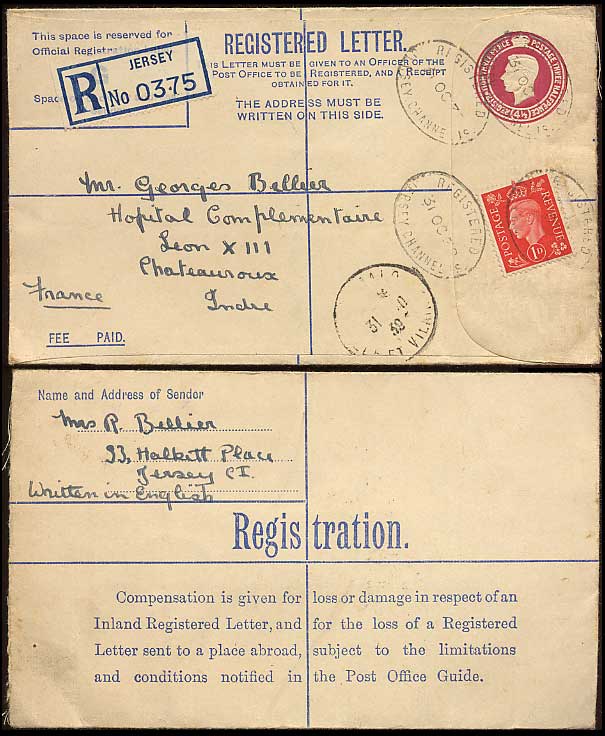 This space is reserved for
Official Registra
Spac
R
JERSEY
No 0375
REGISTERED LETTER.
IS LETTER MUST BE GIVEN TO AN OFFICER OF THE
POST OFFICE TO BE REGISTERED, AND A RECEIPT
OBTAINED FOR IT.
THE ADDRESS MUST BE
WRITTEN ON THIS SIDE.
REGISTERED
JERSEY CHANNEL IS.
POSTAGE THREE HALFPENCE
(4½)
REGISTERED
31 OC 39
JERSEY CHANNEL IS
POSTAGE
REVENUE
1D
Mr. Georges Bellier
Hopital Complementaire
Leon X 111
Chateauroux
France
Indre
FEE PAID.
31
39
ET VILAINE
Name and Address of Sender
Mrs R. Bellier
33, Halkett Place
Jersey CI.
Written in English
Registration.
Compensation is given for loss or damage in respect of an
Inland Registered Letter, and for the loss of a Registered
Letter sent to a place abroad, subject to the limitations
and conditions notified in the Post Office Guide.